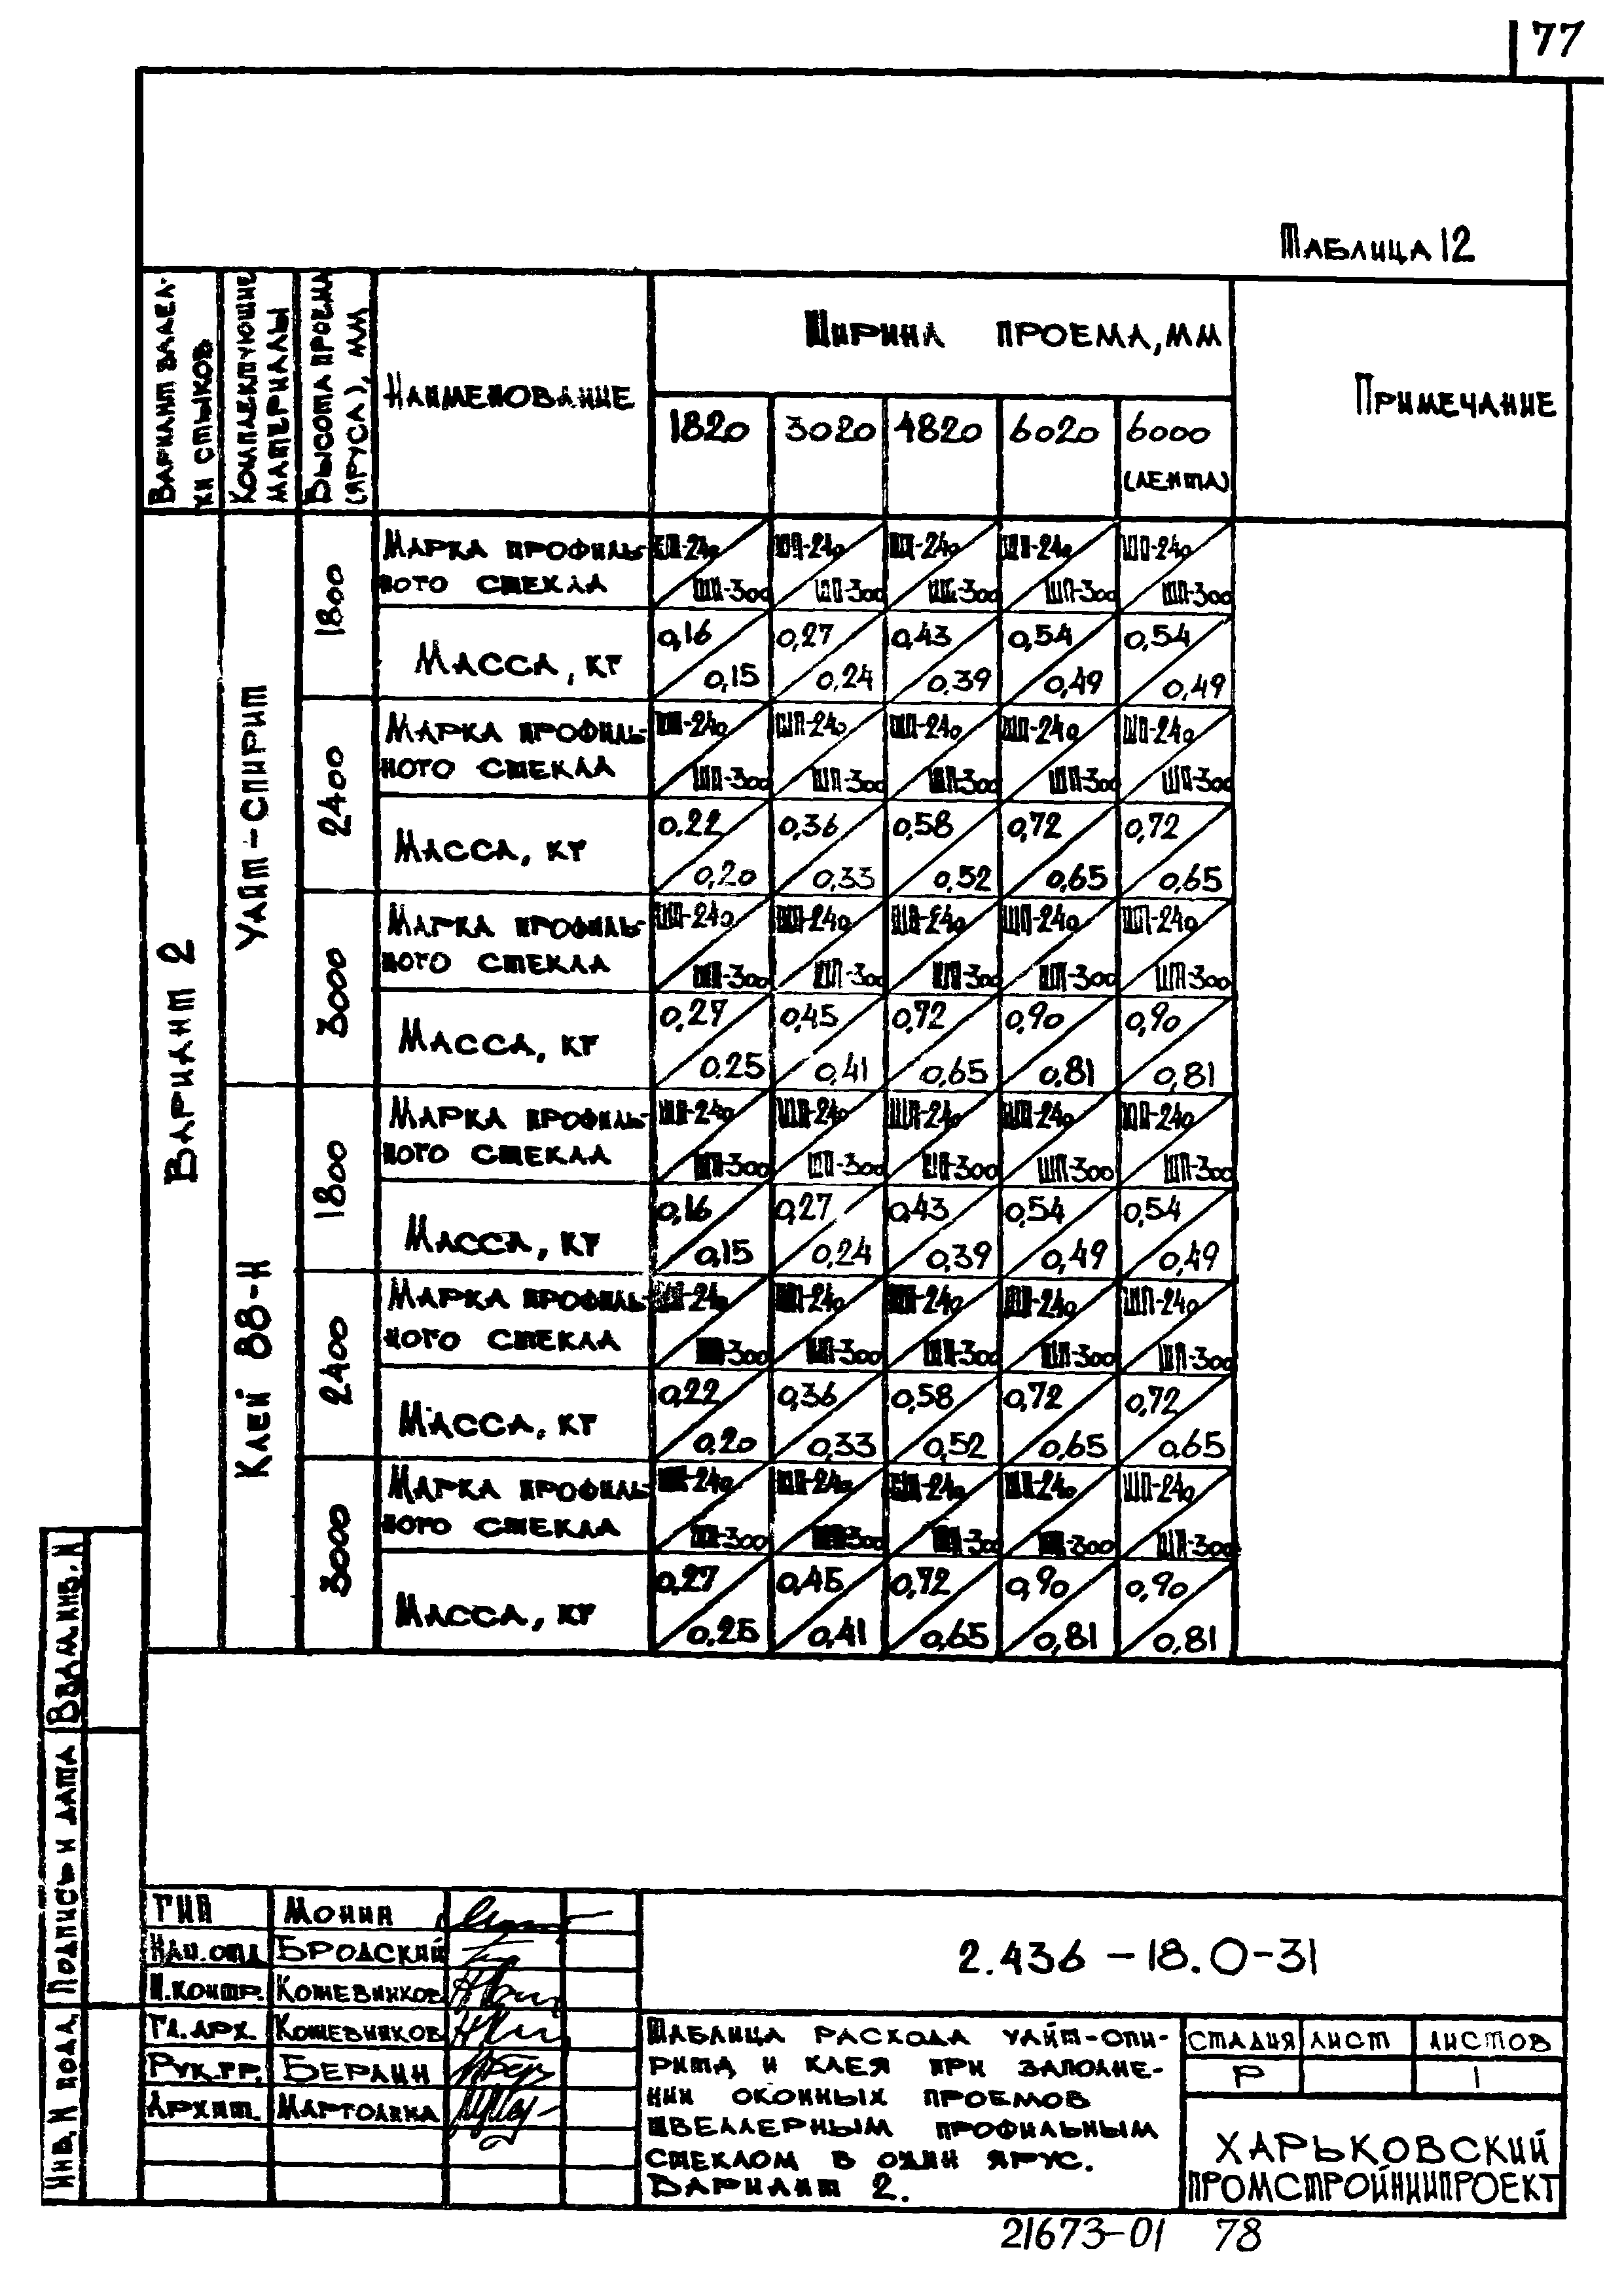 77
Таблица 12
Вариант задел-
ки стыков
Комплектующие
материалы
Высота проема
(яруса), мм
Наименование
Ширина проема, мм
Примечание
1820 3020 4820 6020 6000
(лента)
Вариант 2
Уайт-спирит
1800
Марка профиль-
ного стекла
ШП-240 ШП-240 ШП-240 ШП-240 ШП-240
ШП-300 ШП-300 ШП-300 ШП-300 ШП-300
Масса, кг
0,16 0,27 0,43 0,54 0,54
0,15 0,24 0,39 0,49 0,49
2400
Марка профиль-
ного стекла
ШП-240 ШП-240 ШП-240 ШП-240 ШП-240
ШП-300 ШП-300 ШП-300 ШП-300 ШП-300
Масса, кг
0.22 0,36 0,58 0,72 0,72
0,20 0,33 0,52 0,65 0,65
3000
Марка профиль-
ного стекла
ШП-240 ШП-240 ШП-240 ШП-240 ШП-240
ШП-300 ШП-300 ШП-300 ШП-300 ШП-300
Масса, кг
0,27 0,45 0,72 0,90 0,90
0.25 0,41 0,65 0.81 0,81
Клей 88-Н
1800
Марка профиль-
ного стекла
ШП-240 ШП-240 ШП-240 ШП-240 ШП-240
ШП-300 ШП-300 ШП-300 ШП-300 ШП-300
Масса, кг
0,16 0,27 0,43 0,54 0,54
0,15 0,24 0,39 0,49 0,49
2400
Марка профиль-
ного стекла
ШП-240 ШП-240 ШП-240 ШП-240 ШП-240
ШП-300 ШП-300 ШП-300 ШП-300 ШП-300
Масса, кг
0,22 0,36 0,58 0,72 0,72
0,20 0,33 0,52 0,65 0,65
3000
Марка профиль-
ного стекла
ШП-240 ШП-240 ШП-240 ШП-240 ШП-240
ШП-300 ШП-300 ШП-300 ШП-300 ШП-300
Масса, кг
0,27 0,45 0,72 0,90 0,90
0,25 0,41 0,65 0,81 0,81
Взам.инв. N
Подпись и дата
Инв. N подл.
ГИП Монин
Нач.отд Бродский
Н.контр. Кожевников
Гл.арх. Кожевников
Рук.гр. Берлин
Архит. Мартолика
2.436-18.0-31
Таблица расхода уайт-спи-
рита и клея при заполне-
нии оконных проемов
швеллерным профильным
стеклом в один ярус.
Вариант 2.
стадия лист листов
Р 1
Харьковский
Промстройниипроект
21673-01 78